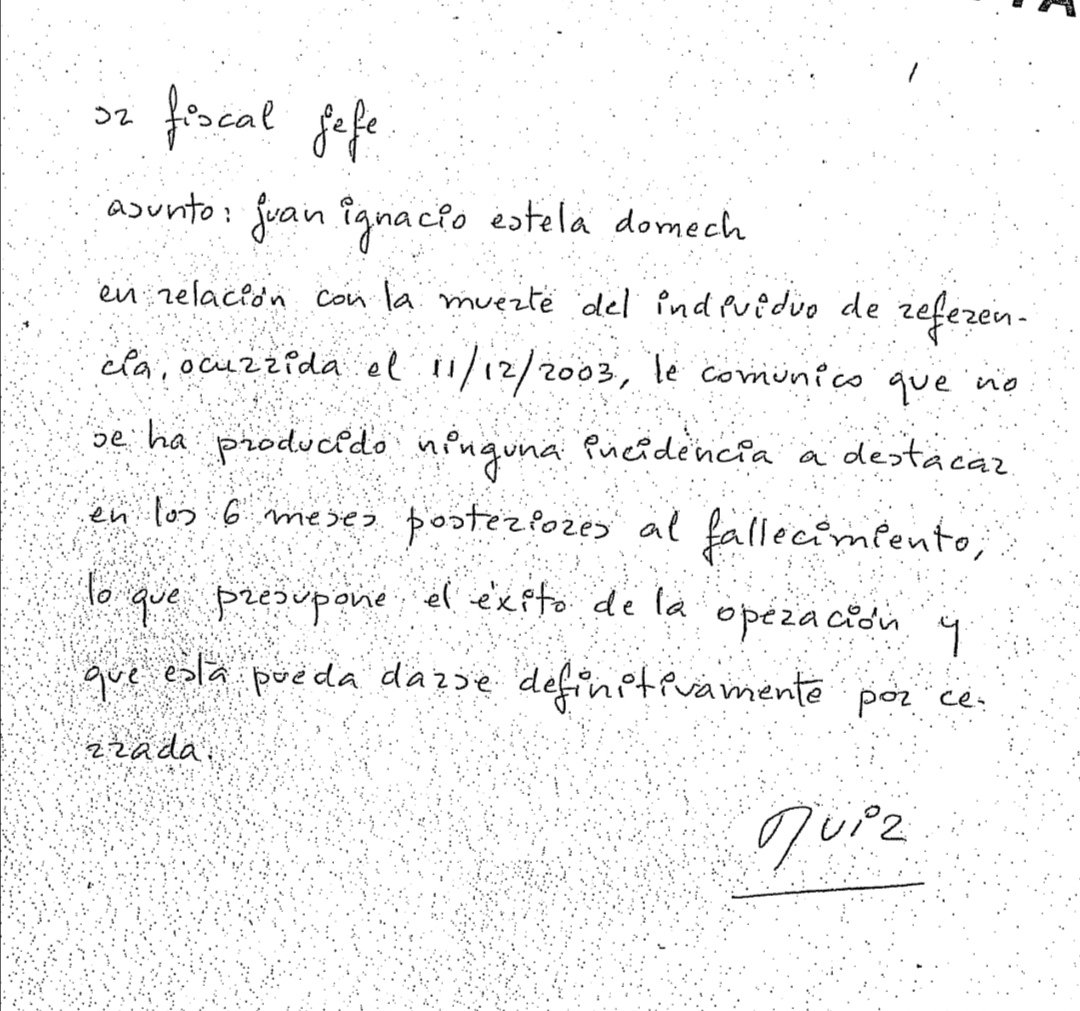 sr fiscal jefe
asunto: juan ignacio estela domech
en relación con la muerte del individuo de referen-
cia, ocurrida el 11/12/2003, le comunico que no
se ha producido ninguna incidencia a destacar
en los 6 meses posteriores al fallecimiento,
lo que presupone el éxito de la operación y
que esta pueda darse definitivamente por ce-
rrada.